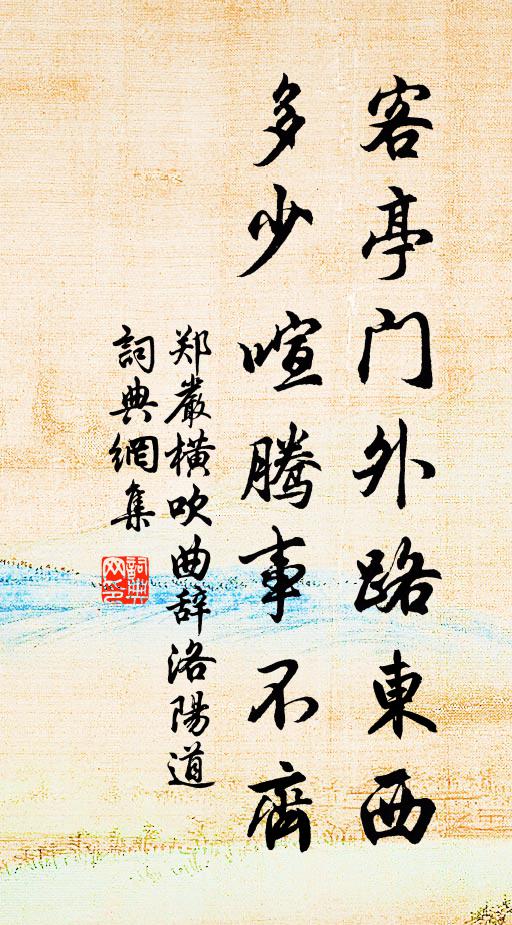 客亭门外路東西
多少喧騰事不齊
郑嚴橫吹曲辞洛陽道
詞典網集
詞典网印